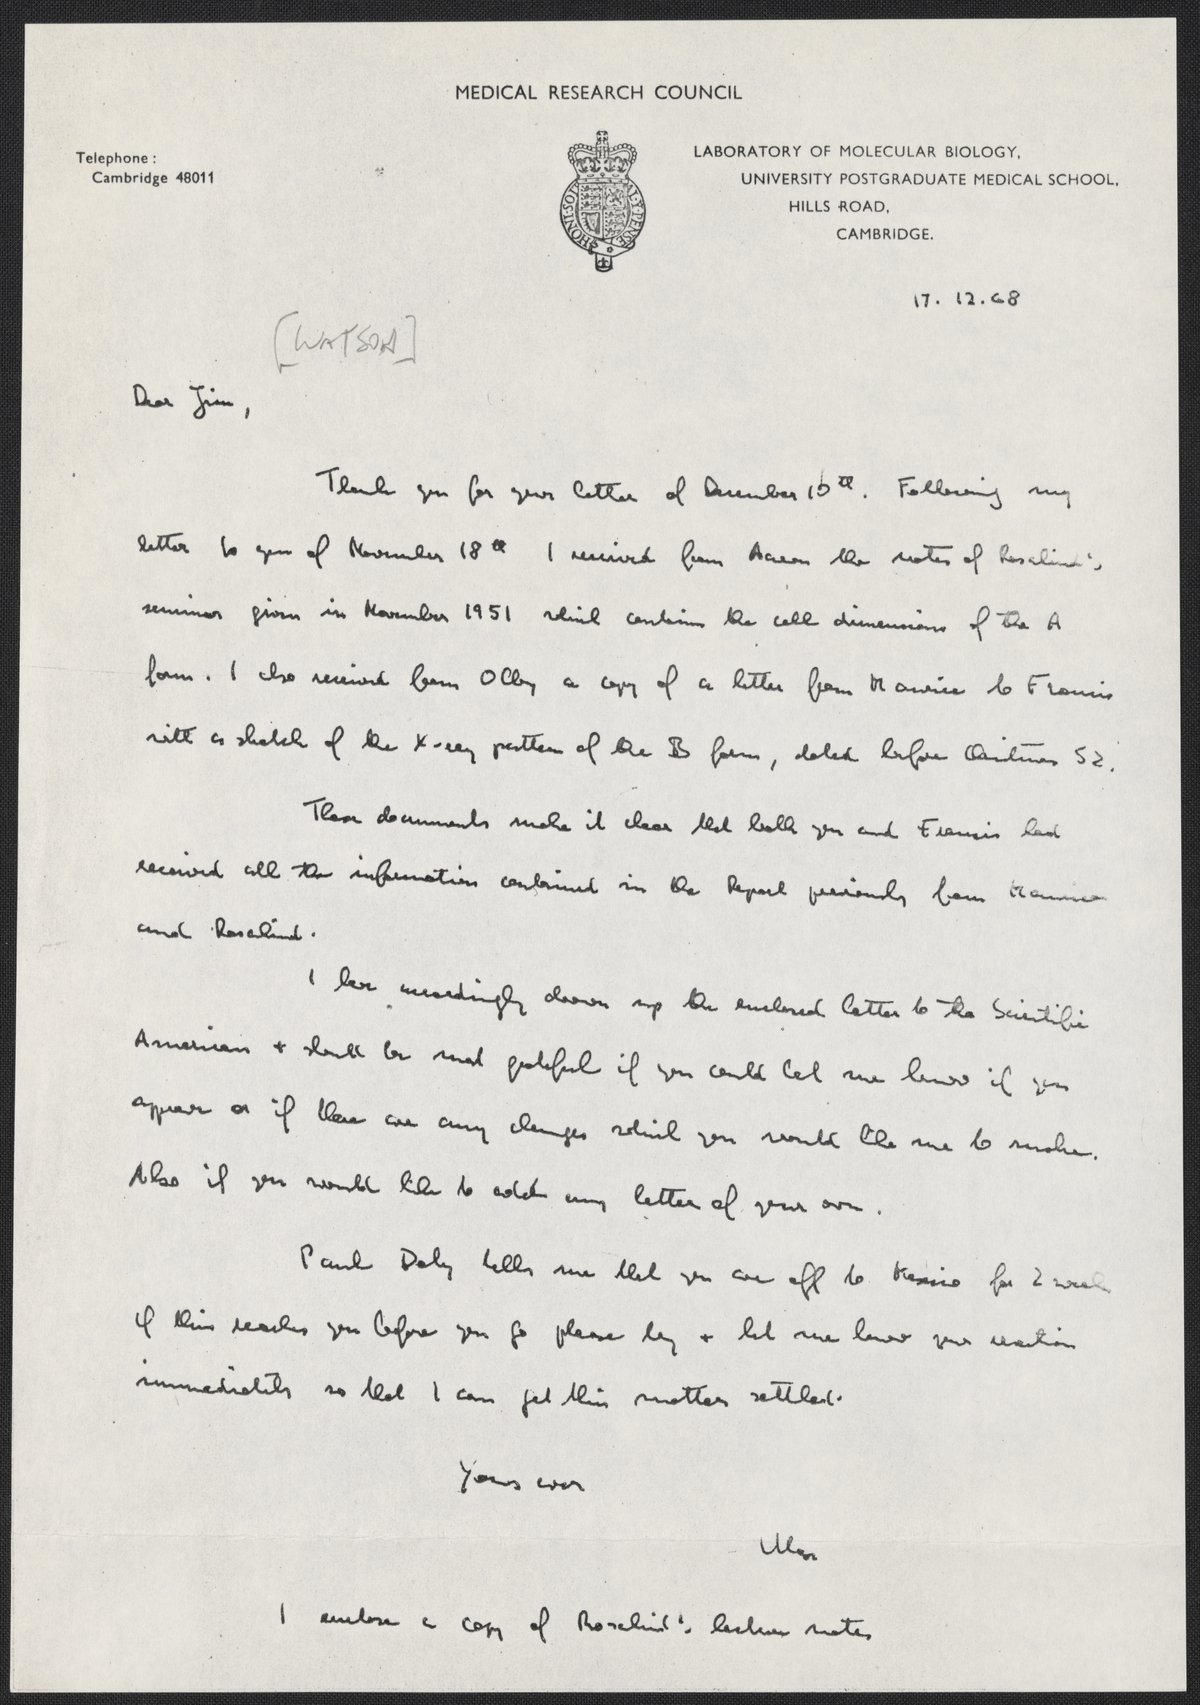 MEDICAL RESEARCH COUNCIL
Telephone :
Cambridge 48011
LABORATORY OF MOLECULAR BIOLOGY,
UNIVERSITY POSTGRADUATE MEDICAL SCHOOL,
HILLS ROAD,
CAMBRIDGE.
HONI·SOIT AL·Y·PENSE
17. 12. 68
[WATSON]
Dear Jim,
Thank you for your letter of December 10th. Following my
letter to you of November 18th I received from Aaron the notes of Rosalind's
seminar given in November 1951 which contains the cell dimensions of the A
form. I also received from Olby a copy of a letter from Maurice to Francis
with a sketch of the X-ray pattern of the B form, dated before Christmas 52.
These documents make it clear that both you and Francis had
received all the information contained in the Report previously from Maurice
and Rosalind.
I have accordingly drawn up the enclosed letter to the Scientific
American + should be most grateful if you could let me know if you
approve or if there are any changes which you would like me to make.
Also if you would like to add any letter of your own.
Paul Doty tells me that you are off to Mexico for 2 weeks
if this reaches you before you go please try + let me know your reaction
immediately so that I can get this matter settled.
Yours ever
Max
I enclose a copy of Rosalind's lecture notes